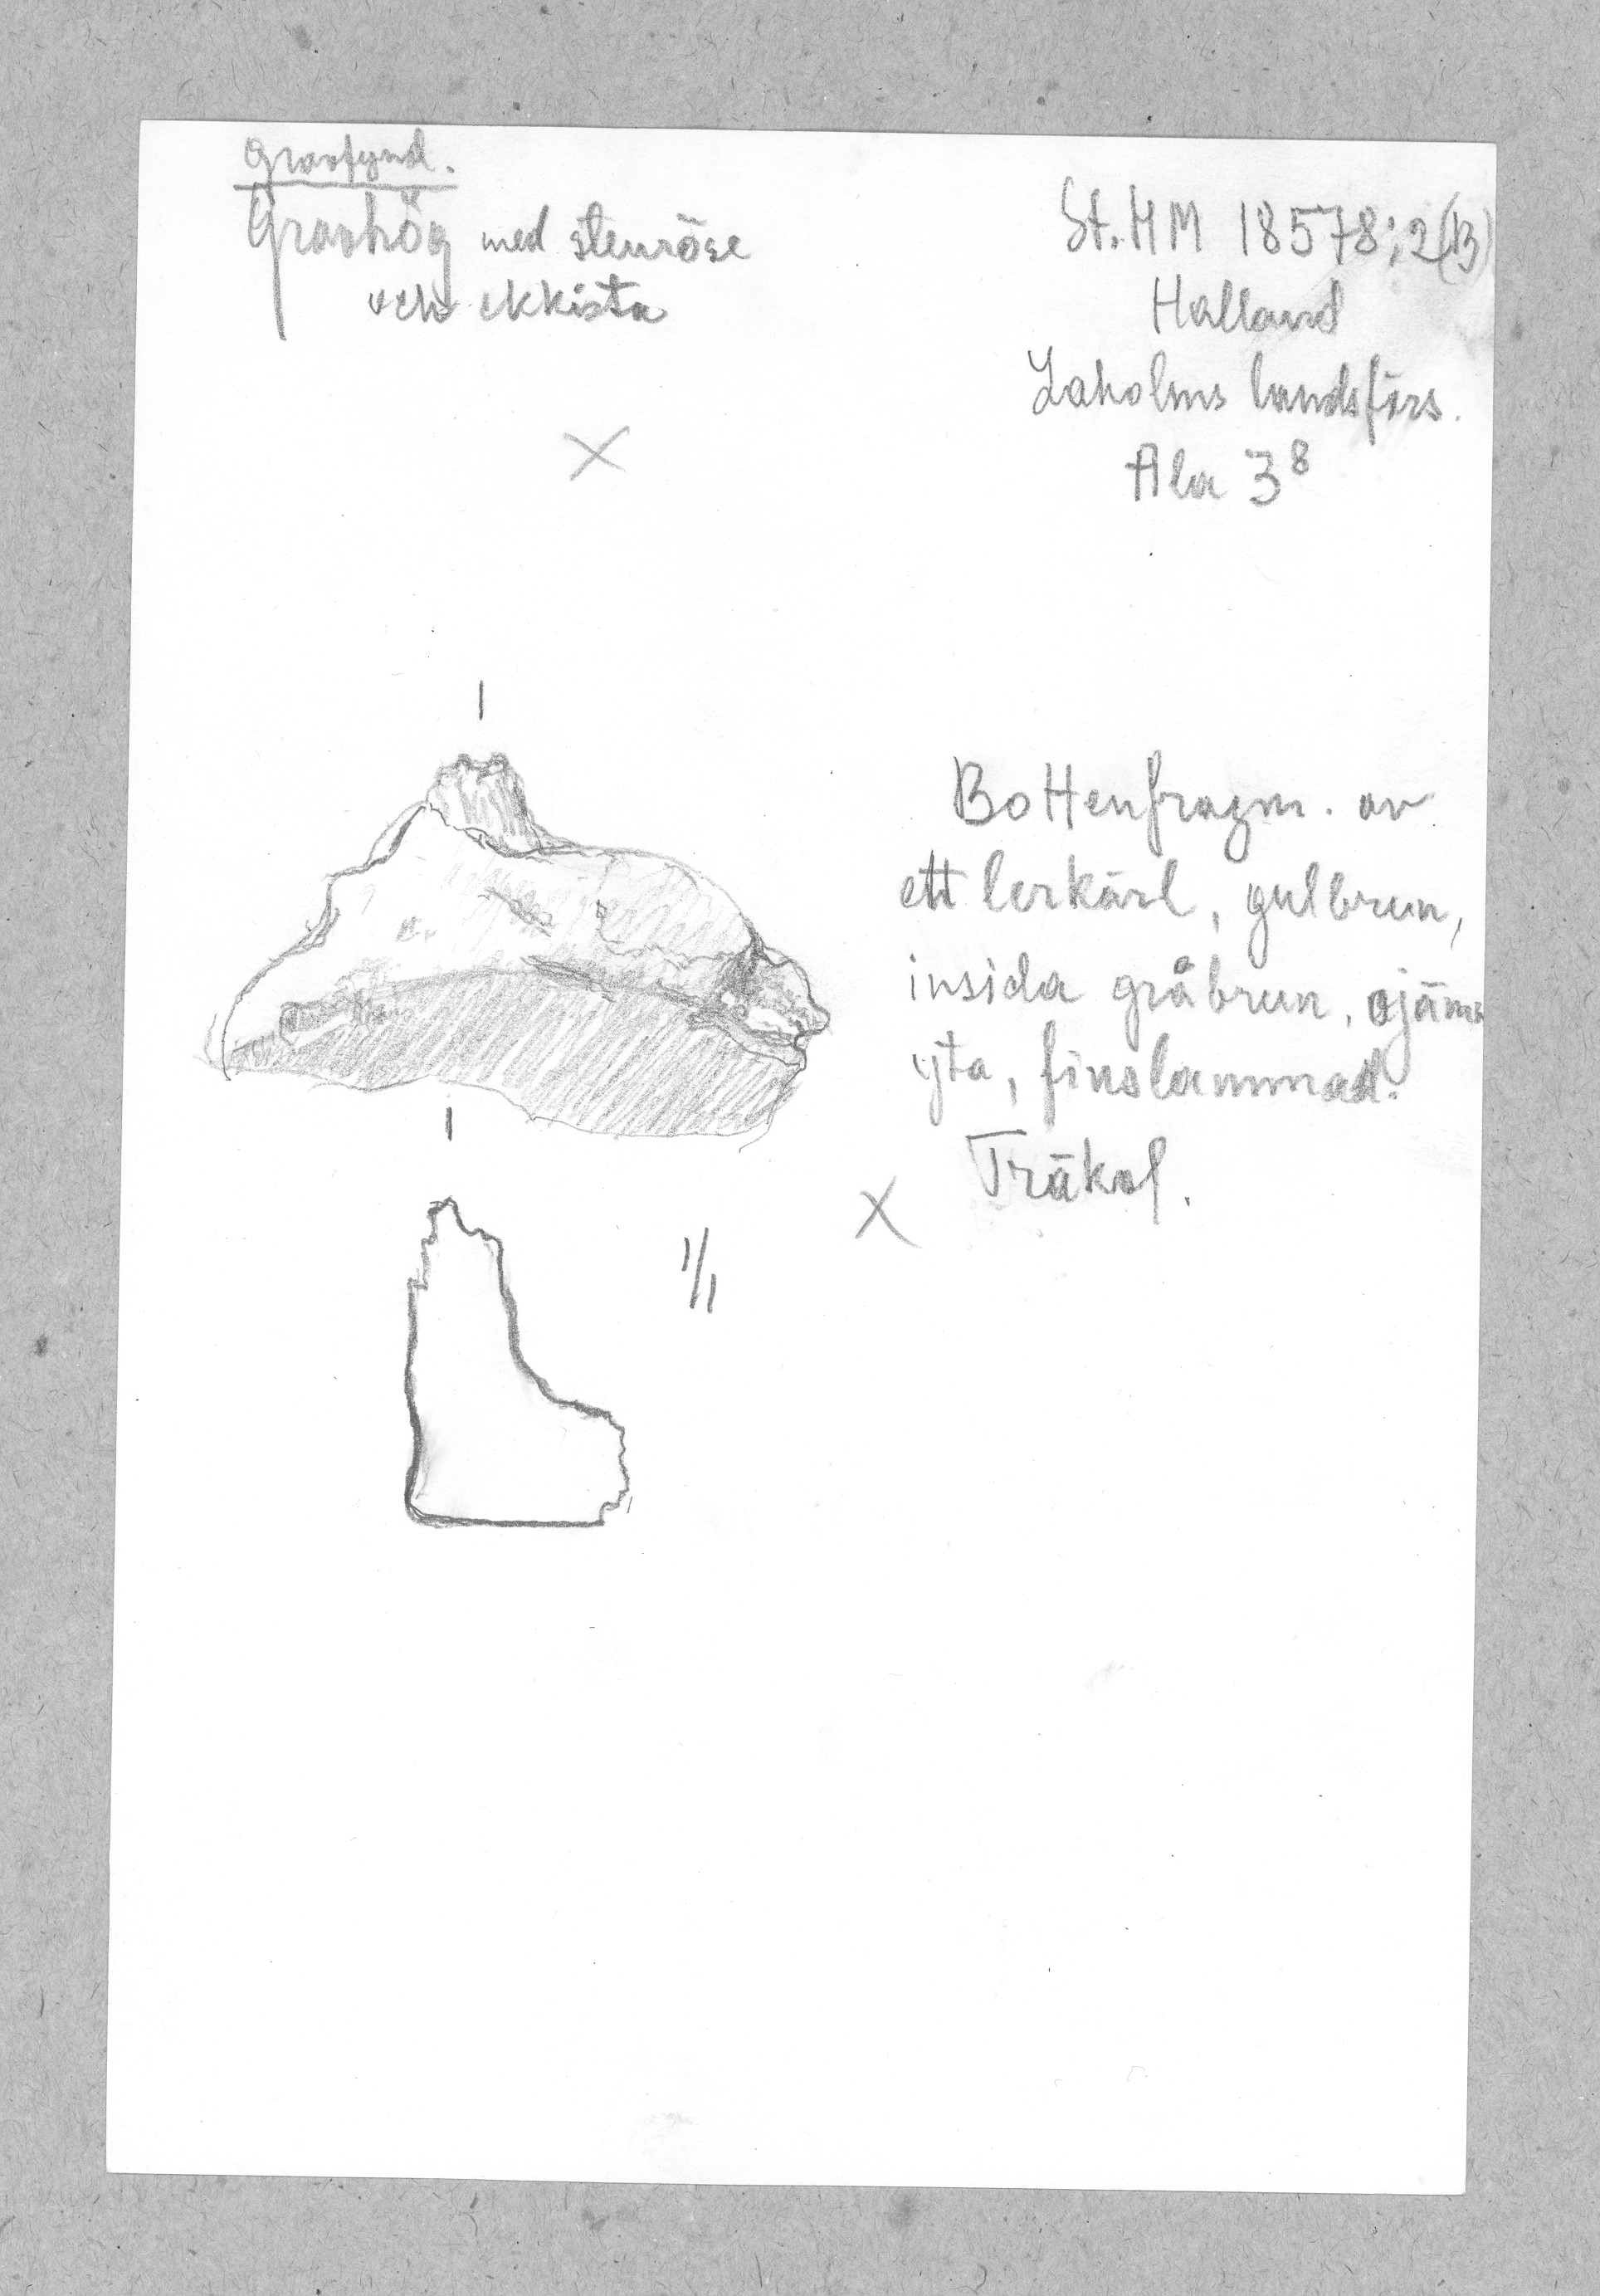 Gravfynd.
Gravhög med stenröse
och ekkista
St. HM 18578:2(B)
Halland
Laholms landsförs.
Ala 3⁸
X
Bottenfragm. av
ett lerkärl, gulbrun,
insida gråbrun, ojämn
yta, finslammad.
Träkol.
X
1/1